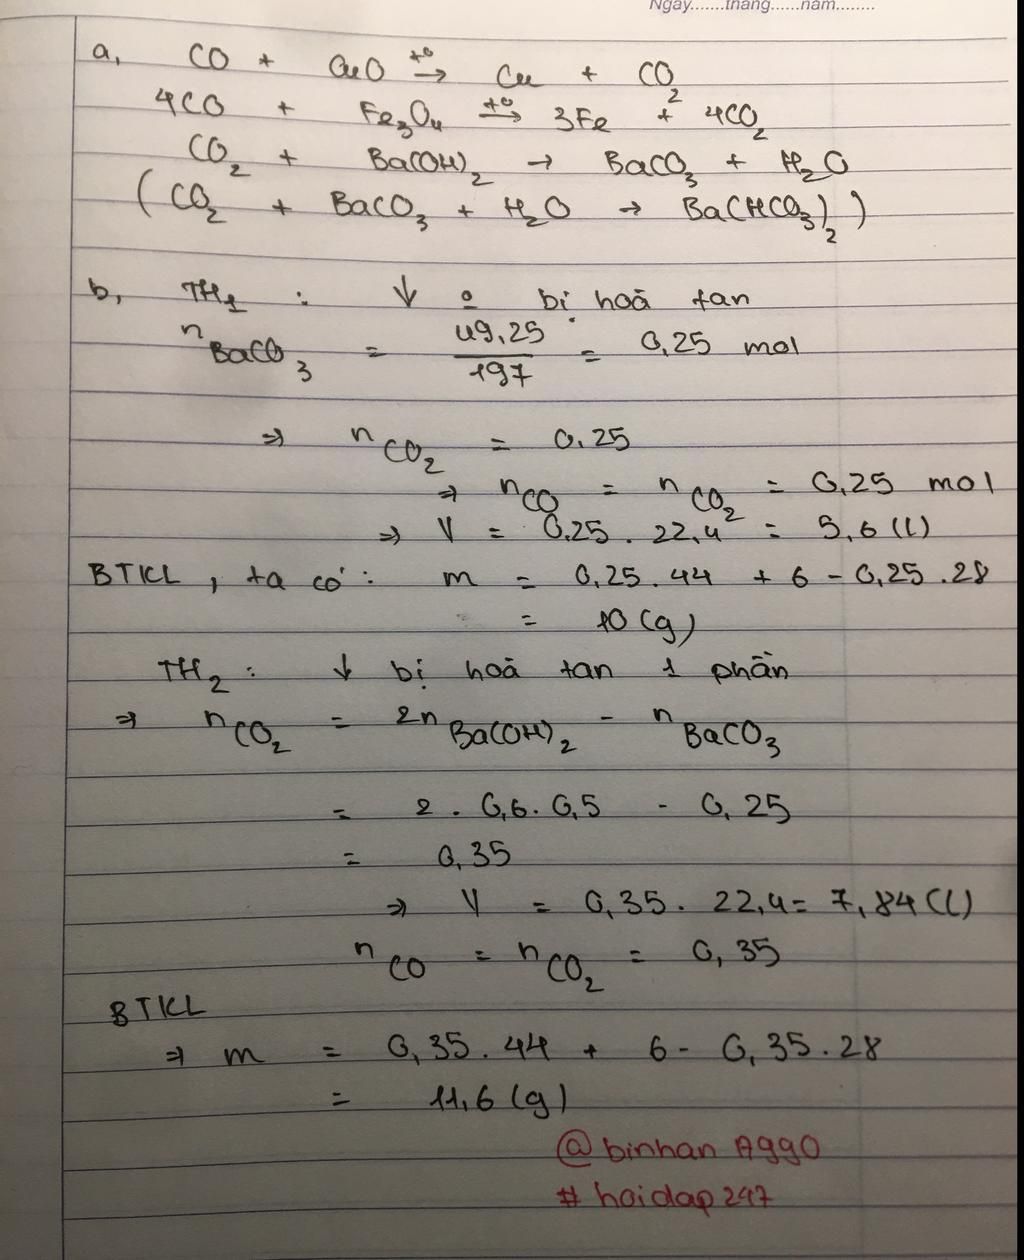 Ngày.......tháng......năm........
a, CO + CuO t° → Cu + CO₂
4CO + Fe₃O₄ t° → 3Fe + 4CO₂
CO₂ + Ba(OH)₂ → BaCO₃ + H₂O
(CO₂ + BaCO₃ + H₂O → Ba(HCO₃)₂)
b, TH₁ : ↓ ọ bị hoà tan
n BaCO₃ = 49,25 / 197 = 0,25 mol
⇒ n CO₂ = 0,25
⇒ n CO = n CO₂ = 0,25 mol
⇒ V = 0,25 . 22,4 = 5,6 (l)
BTKL, ta có : m = 0,25.44 + 6 - 0,25.28
= 10 (g)
TH₂ : ↓ bị hoà tan 1 phần
⇒ n CO₂ = 2n Ba(OH)₂ - n BaCO₃
= 2 . 0,6 . 0,5 - 0,25
= 0,35
⇒ V = 0,35 . 22,4 = 7,84 (l)
n CO = n CO₂ = 0,35
BTKL
⇒ m = 0,35.44 + 6 - 0,35.28
= 11,6 (g)
@binhan Agg0
# hoidap247